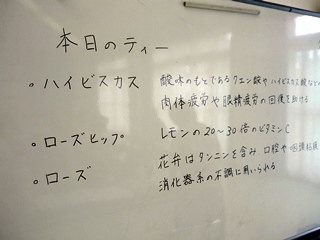 本日のティー
。ハイビスカス 酸味のもとであるクエン酸やハイビスカス酸などの
肉体疲労や眼精疲労の回復を助ける
。ローズヒップ レモンの20〜30倍のビタミンC
。ローズ 花弁はタンニンを含み 口腔や
消化器系の不調に用いられる